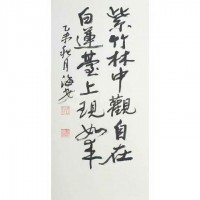 紫竹林中觀自在
白蓮臺上現如来
乙未秋月海光